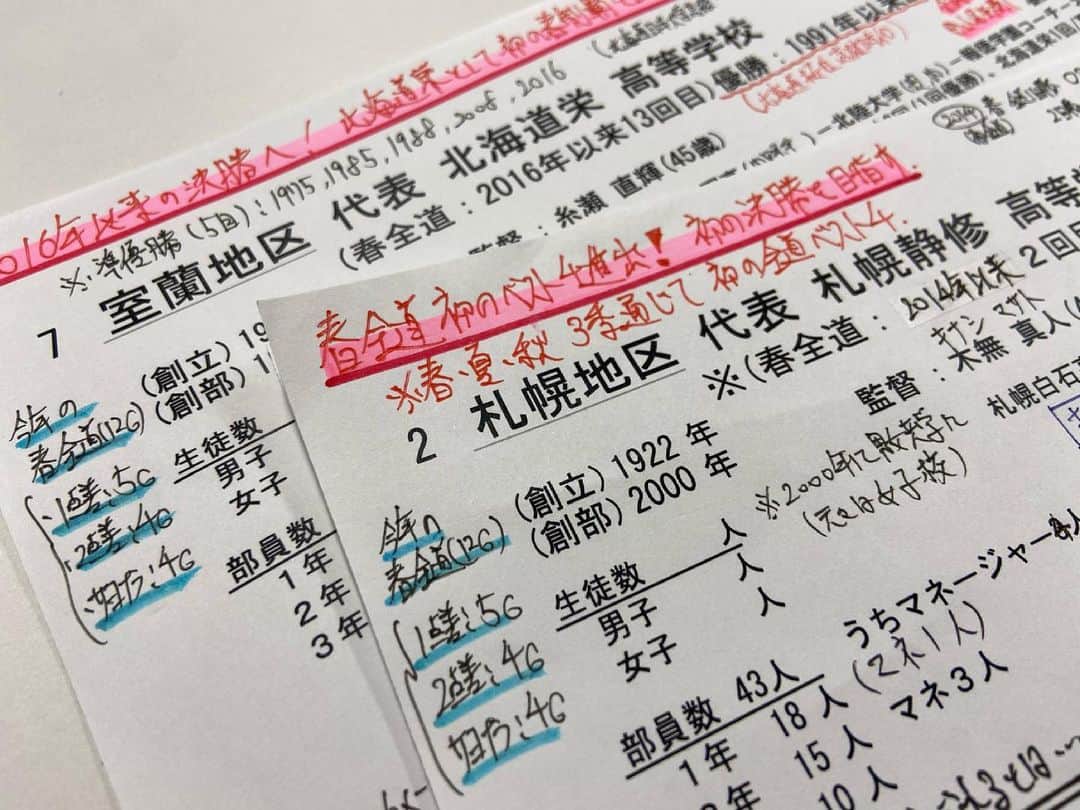 016年以来の決勝へ! 北海道栄として初の春制覇
※準優勝(5回):1975,1985,1988,2008,2016
7 室蘭地区 代表 北海道栄 高等学校
(春全道:2016年以来13回目)優勝:1991年以来
監督:糸瀬 直輝(45歳)
(創立)19
(創部)1
今年の
春全道(12G)
1点差:5G
2点差:4G
タイ:4G
生徒数
男子
女子
部員数
1年
2年
3年
春全道 初のベスト4進出! 初の決勝を目指す
※春、夏、秋 3季通じて初の全道ベスト4.
2 札幌地区 代表 札幌静修 高等
※(春全道:2014年以来 2回目
キナシ マサト
監督:木無 真人(
札幌白石
(創立)1922年
(創部)2000年
※2000年に男女共学に
(元は女子校)
今年の
春全道(12G)
1点差:5G
2点差:4G
タイ:4G
生徒数 人
男子 人
女子 人
部員数 43人
1年 18人
15人
10人
うちマネージャー
(マネ1人)
マネ3人